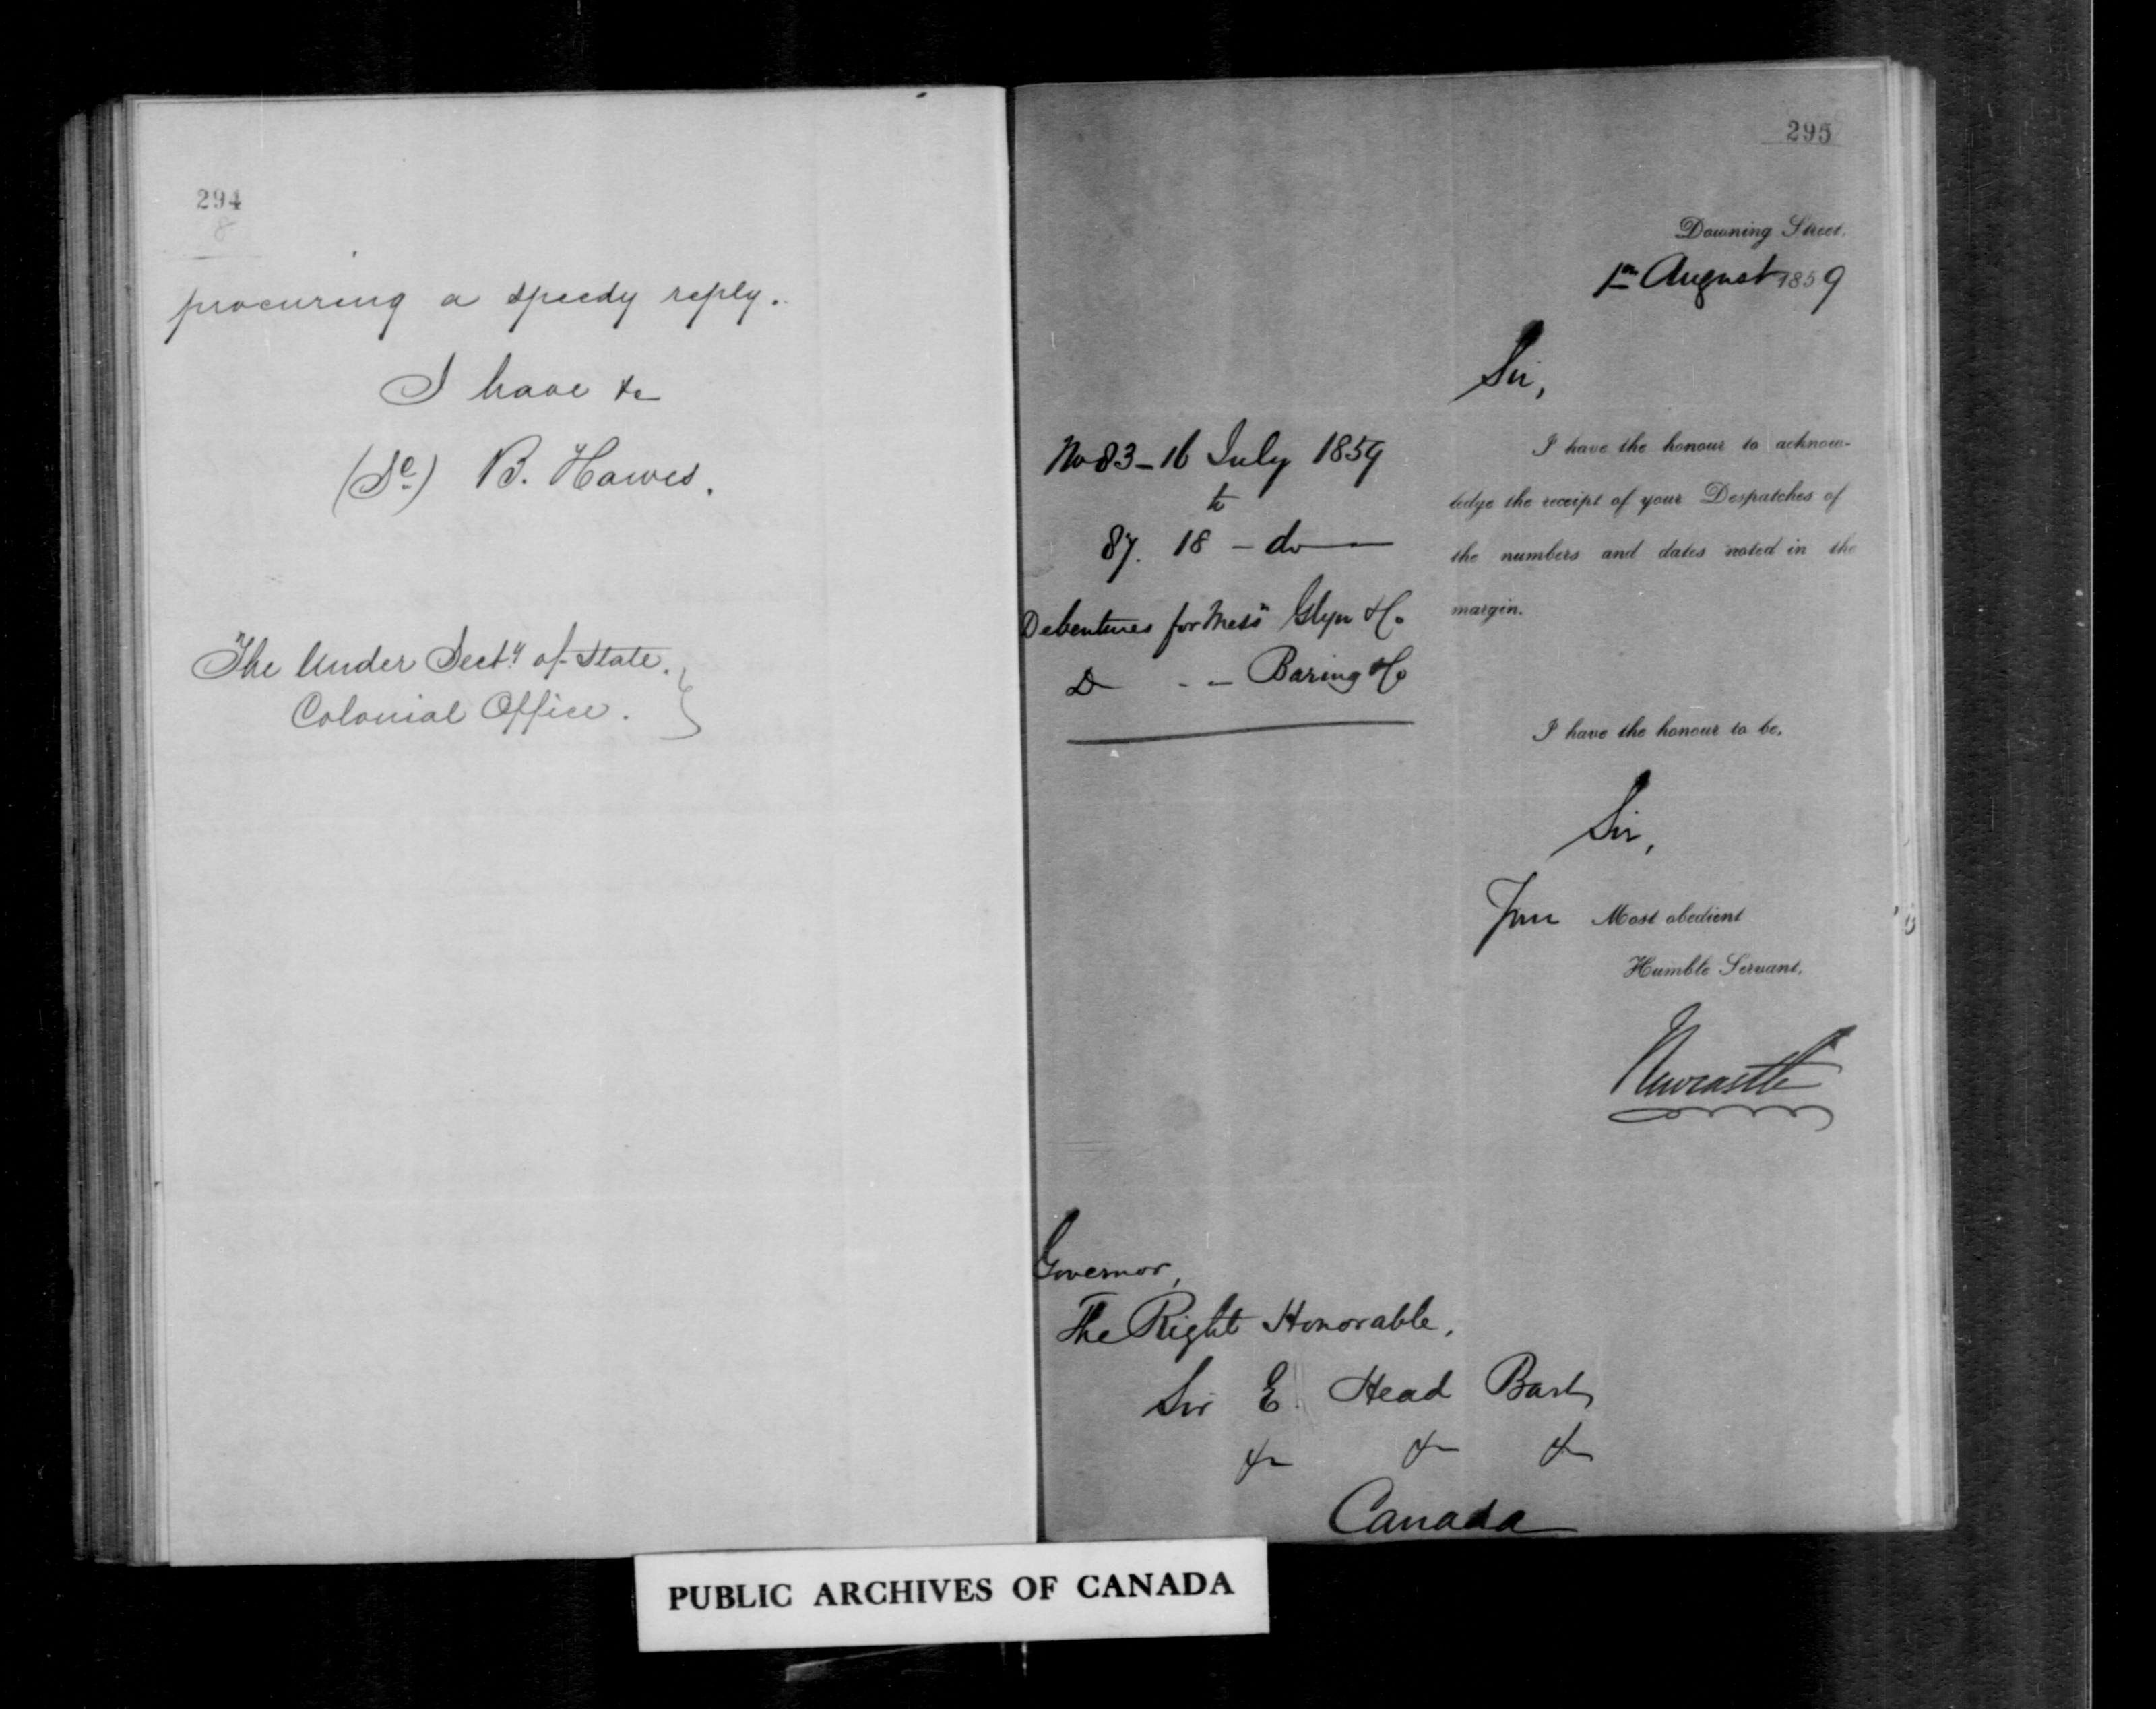 294
8
procuring a speedy reply.
I have &c
(Sd) B. Hawes.
The Under Secty of State.
Colonial Office.
295
Downing Street,
1st August 1859
Sir,
No 83 - 16 July 1859
to
87. 18 - do
Debentures for Messrs Glyn & Co
Do - - Baring & Co
I have the honour to acknow-
ledge the receipt of your Despatches of
the numbers and dates noted in the
margin.
I have the honour to be,
Sir,
Your Most obedient
Humble Servant,
Newcastle
Governor,
The Right Honorable,
Sir E. Head Bart
&c &c &c
Canada
PUBLIC ARCHIVES OF CANADA